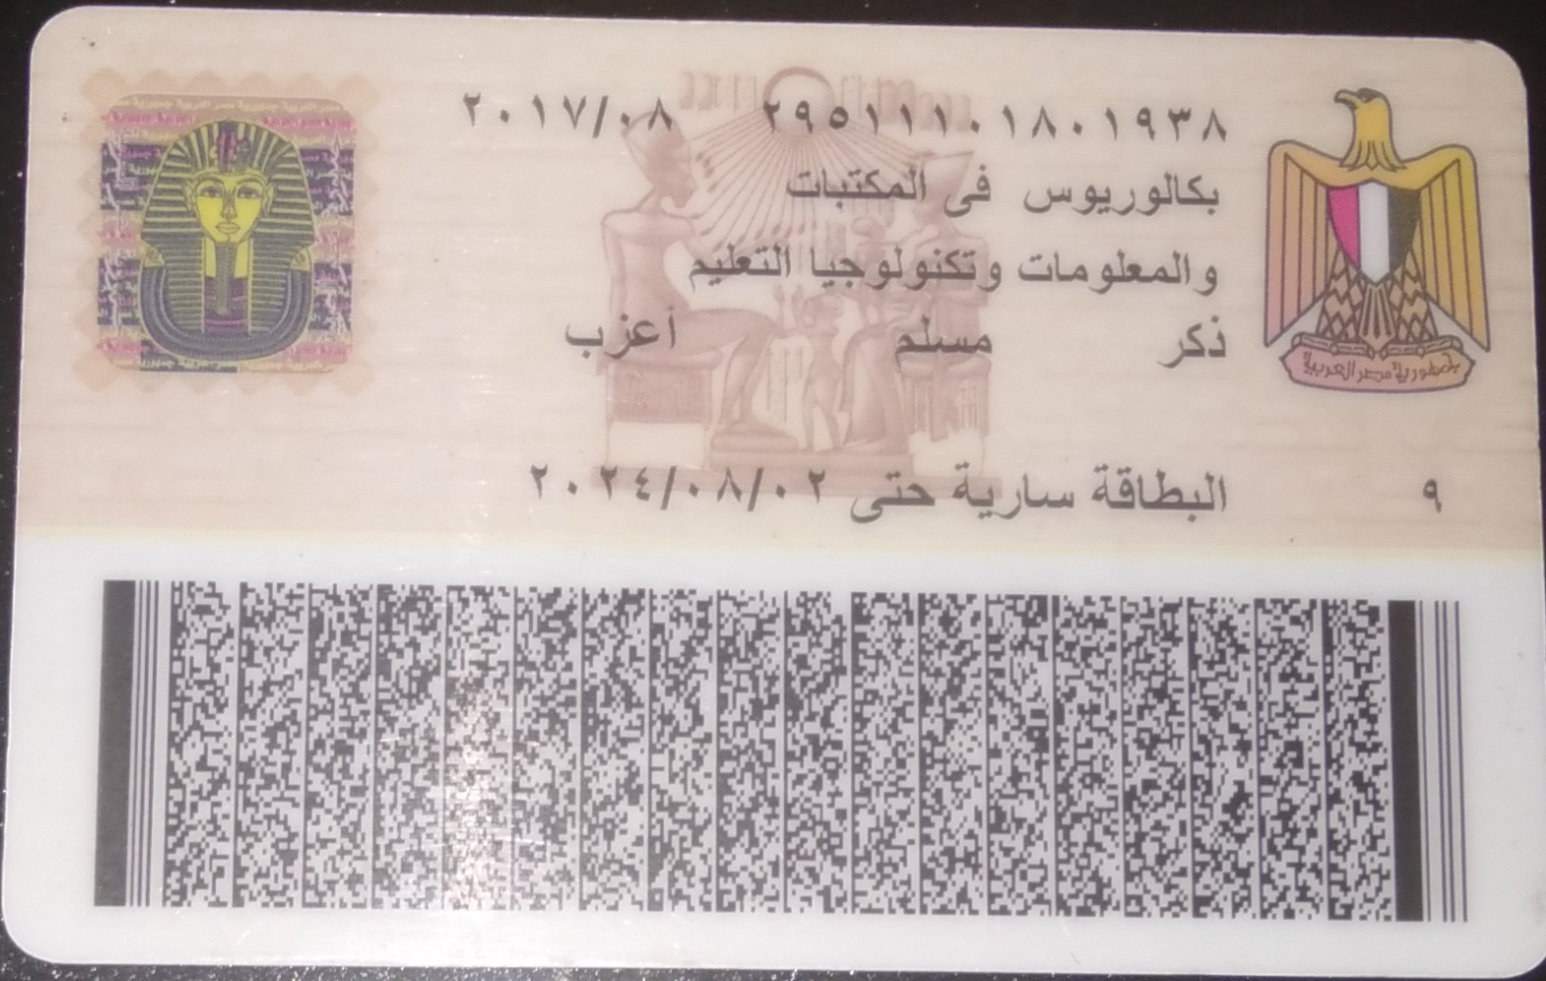 ٢٩٥١١١٠١٨٠١٩٣٨ ٢٠١٧/٠٨
بكالوريوس فى المكتبات
والمعلومات وتكنولوجيا التعليم
ذكر مسلم أعزب
البطاقة سارية حتى ٢٠٢٤/٠٨/٠٢
٩
جمهورية مصر العربية